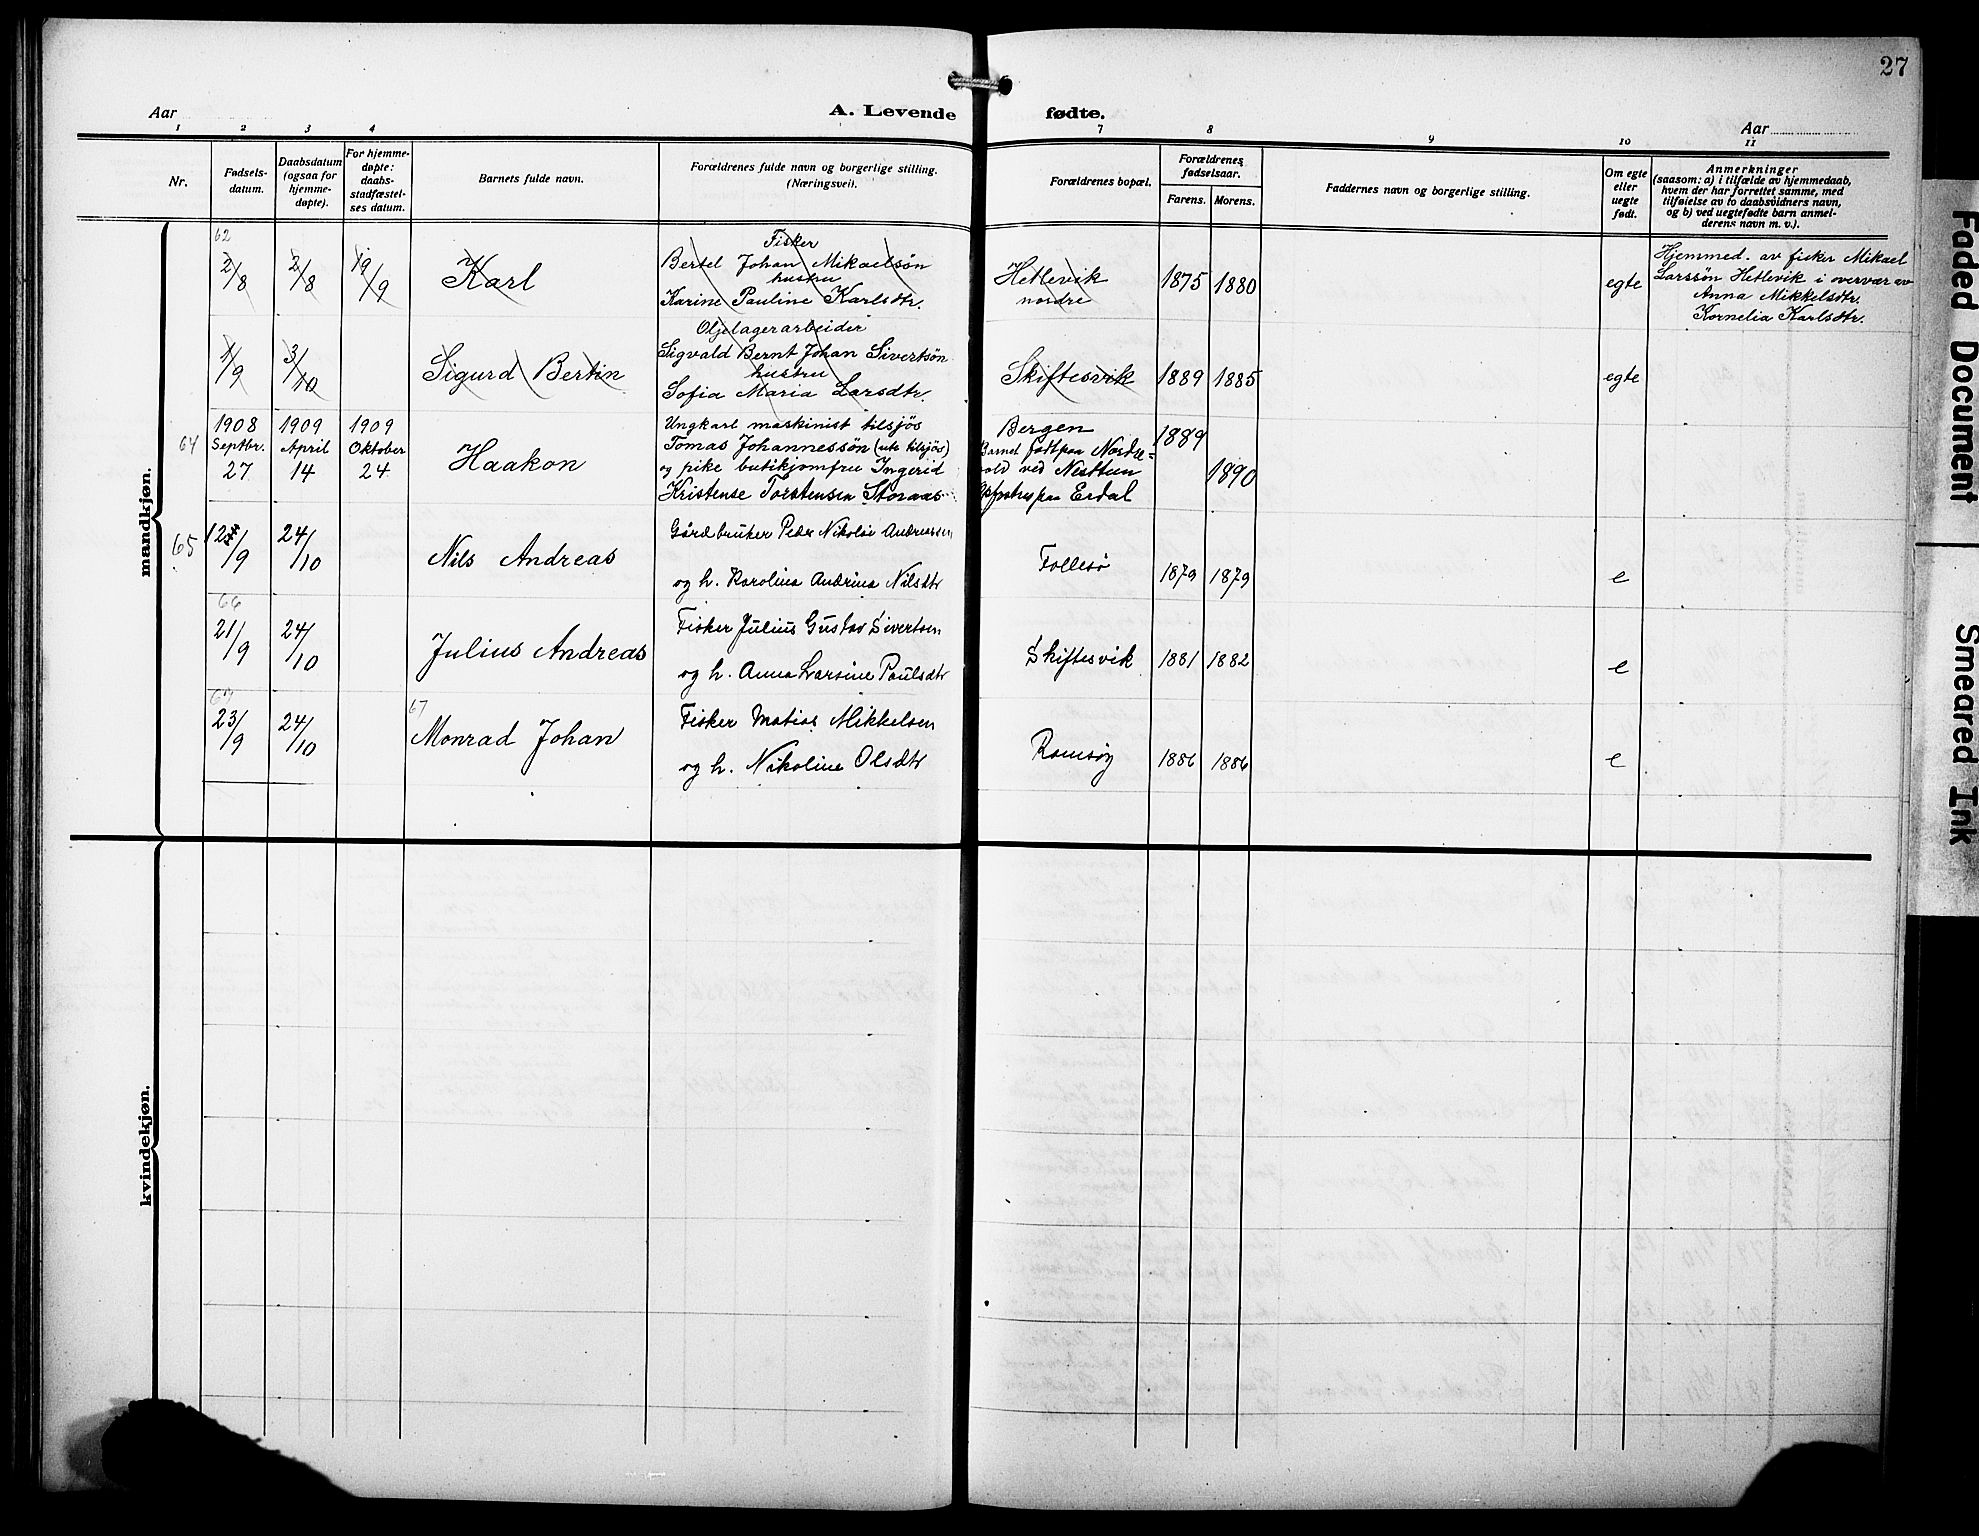 27
Aar
A. Levende fødte.
Aar
1 2 3 4 7 8 9 10 11
Nr.
Fødsels-
datum.
Daabsdatum
(ogsaa for
hjemme-
døpte).
For hjemme-
døpte:
daabs-
stadfæstel-
ses datum.
Barnets fulde navn.
Forældrenes fulde navn og borgerlige stilling.
(Næringsvei).
Forældrenes bopæl.
Forældrenes
fødselsaar.
Farens. Morens.
Faddernes navn og borgerlige stilling.
Om egte
eller
uegte
født.
Anmerkninger
(saasom: a) i tilfælde av hjemmedaab,
hvem der har forrettet samme, med
tilføielse av to daabsvidners navn,
og b) ved uegtefødte barn anmel-
derens navn m. v.).
mandkjøn.
62
2/8 2/8 19/9
Karl
Fisker
Bertel Johan Mikaelsön
hustru
Karine Pauline Karlsdtr.
Hetlevik
nordre
1875 1880
egte
Hjemmed. av fisker Mikael
Larssön Hetlevik i overvær av
Anna Mikkelsdtr.
Kornelia Karlsdtr.
1/9 3/10
Sigurd Bertin
Oljelagerarbeider
Sigvald Bernt Johan Sivertsön
hustru
Sofia Maria Larsdtr.
Skiftesvik
1889 1885
egte
64
1908
Septbr.
27
1909
April
14
1909
Oktober
24
Haakon
Ungkarl maskinist tilsjös
Tomas Johannessön (ute tilsjös)
og pike butikjomfru Ingerid
Kristense Torstensen Storaas
Bergen
Barnet födt paa Nordre=
vold ved Nesttun
Opfostres paa Erdal
1889
1890
65
12/9 24/10
Nils Andreas
Gårdbruker Peder Nikolai Andreassen
og h. Karolina Andrina Nilsdtr
Follesø
1879 1879
e
66
21/9 24/10
Julius Andreas
Fisker Julius Gustav Sivertsen
og h. Anna Larsine Paulsdtr
Skiftesvik
1881 1882
e
67
23/9 24/10
67
Monrad Johan
Fisker Matias Mikkelsen
og h. Nikoline Olsdtr
Ramsøy
1886 1886
e
kvindekjøn.
Faded Document
Smeared Ink